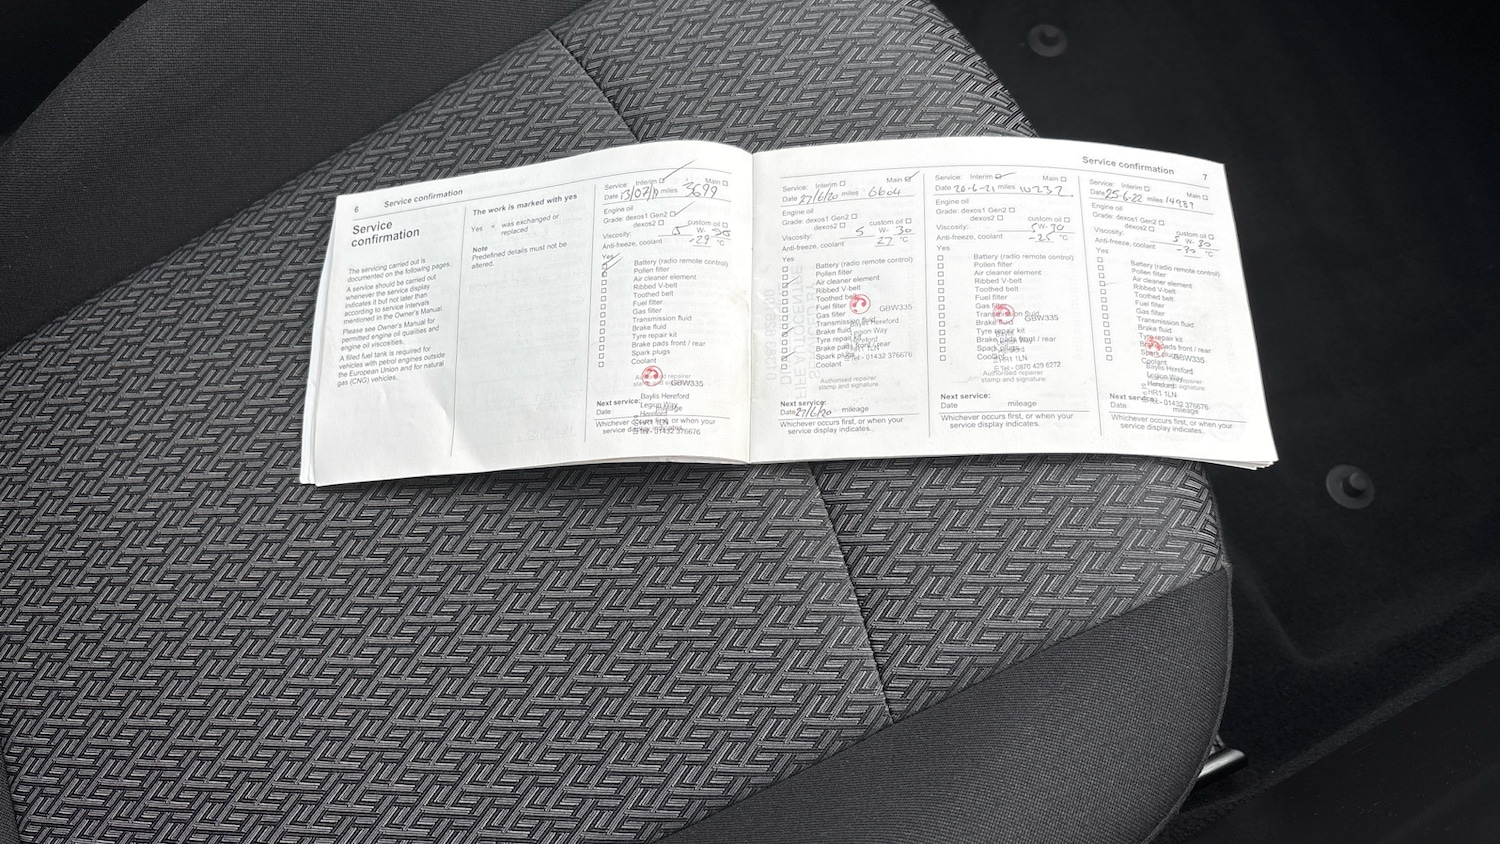 6 Service confirmation
Service
confirmation
The servicing carried out is
documented on the following pages.
A service should be carried out
whenever the service display
indicates it but not later than
according to service intervals
mentioned in the Owner's Manual.
Please see Owner's Manual for
permitted engine oil qualities and
engine oil viscosities.
A filled fuel tank is required for
vehicles with petrol engines outside
the European Union and for natural
gas (CNG) vehicles.
The work is marked with yes
Yes = was exchanged or
replaced
Note
Predefined details must not be
altered.
Service: Interim Main
Date miles 3699
Engine oil
Grade: dexos1 Gen2
dexos2 custom oil
Viscosity: 5 W- 30
Anti-freeze, coolant -29 °C
Yes
Battery (radio remote control)
Pollen filter
Air cleaner element
Ribbed V-belt
Toothed belt
Fuel filter
Gas filter
Transmission fluid
Brake fluid
Tyre repair kit
Brake pads front / rear
Spark plugs
Coolant
GBW335
Baylis Hereford
Legion Way
Hereford
HR1 1LN
Tel - 01432 376676
Next service:
Date mileage
Whichever occurs first, or when your
service display indicates.
Service confirmation 7
Service: Interim Main
Date 27/6/20 miles 6604
Engine oil
Grade: dexos1 Gen2
dexos2 custom oil
Viscosity: 5 W- 30
Anti-freeze, coolant 27 °C
Yes
Battery (radio remote control)
Pollen filter
Air cleaner element
Ribbed V-belt
Toothed belt
Fuel filter
Gas filter
Transmission fluid
Brake fluid
Tyre repair kit
Brake pads front / rear
Spark plugs
GBW335
Baylis Hereford
Legion Way
HR1 1LN
Tel - 01432 376676
Authorised repairer
stamp and signature
Next service:
Date 27/6/20 mileage
Whichever occurs first, or when your
service display indicates.
Service: Interim Main
Date 20-6-21 miles 10232
Engine oil
Grade: dexos1 Gen2
dexos2 custom oil
Viscosity: 5W-30
Anti-freeze, coolant -25 °C
Yes
Battery (radio remote control)
Pollen filter
Air cleaner element
Ribbed V-belt
Toothed belt
Fuel filter
Gas filter
Transmission fluid
Brake fluid
Tyre repair kit
Brake pads front / rear
Spark plugs
Coolant
GBW335
HR1 1LN
Tel - 0870 429 6272
Authorised repairer
stamp and signature
Next service:
Date mileage
Whichever occurs first, or when your
service display indicates.
Service: Interim Main
Date 25-6-22 miles 14989
Engine oil
Grade: dexos1 Gen2
dexos2 custom oil
Viscosity: 5 W- 30
Anti-freeze, coolant -30 °C
Yes
Battery (radio remote control)
Pollen filter
Air cleaner element
Ribbed V-belt
Toothed belt
Fuel filter
Gas filter
Transmission fluid
Brake fluid
Tyre repair kit
Brake pads front / rear
Spark plugs
Coolant
GBW335
Baylis Hereford
Legion Way
Hereford
HR1 1LN
Tel - 01432 376676
Next service:
Date mileage
Whichever occurs first, or when your
service display indicates.